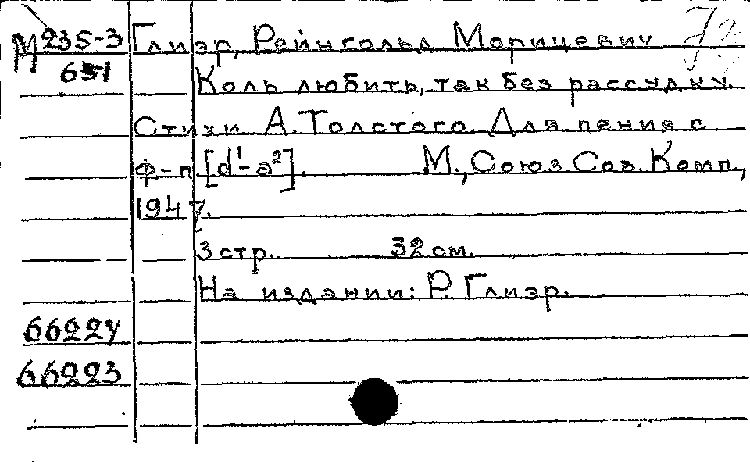 М 235-3 Глиэр, Рейнгольд Морицевич
651 Коль любить, так без рассудку.
Стихи А. Толстого. Для пения с
ф-п. [d¹-a²]. М., Союз Сов. Комп.,
1947.
3 стр. 32 см.
На издании: Р. Глиэр.
66224
66223